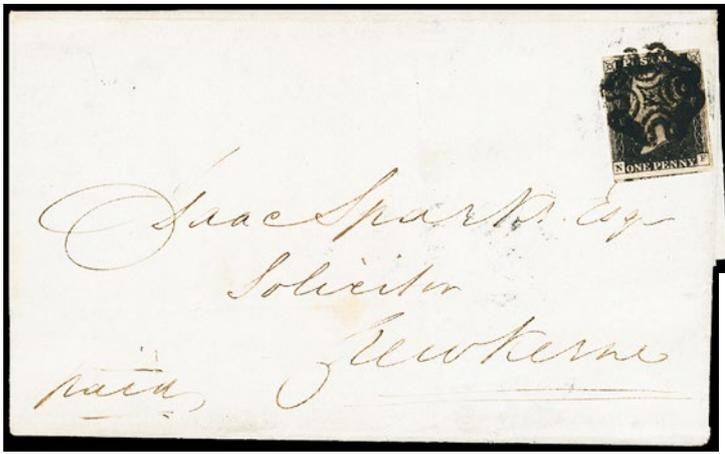 N ONE PENNY F
Isaac Sparks. Esqr
Solicitor
Crewkerne
paid